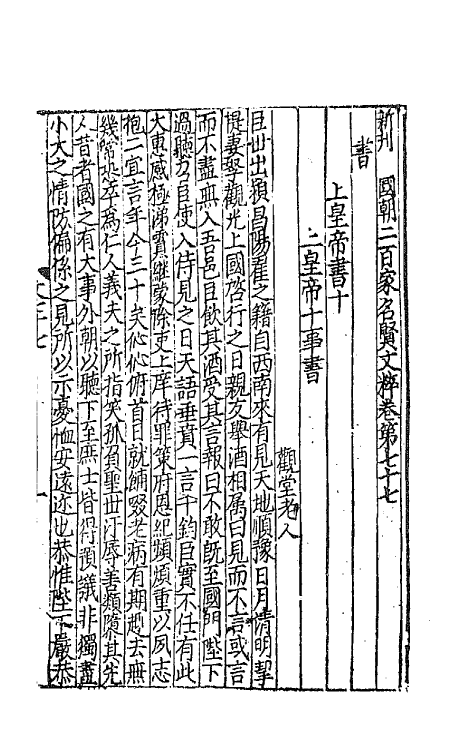 新刊國朝二百家名賢文粹卷第七十七
書
上皇帝書十
上皇帝十事書
觀堂老人
臣世出頻昌陽翟之籍自西南來有見天地順豫日月清明挈
提妻孥觀光上國啓行之日親友舉酒相属曰見而不言或言
而不盡無入吾邑臣飲其酒受其言報曰不敢旣至國門陛下
過聽芻臣使入侍見之日天語垂賁一言千鈞臣實不任有此
大東感極涕實継蒙除吏上庠待罪策府恩紀頻煩重以夙志
抱二宜言于今三十矣伈伈俯首日就緬叕老病有期趂去無
幾常恐卒爲仁人義夫之所指笑孤負聖世汙辱善類隳其先
人昔者國之有大事外朝以聽下至庶士皆得預議非獨盡
小大之情防偏係之見所以示憂恤安遠迩也恭惟陛下嚴恭
文七十七